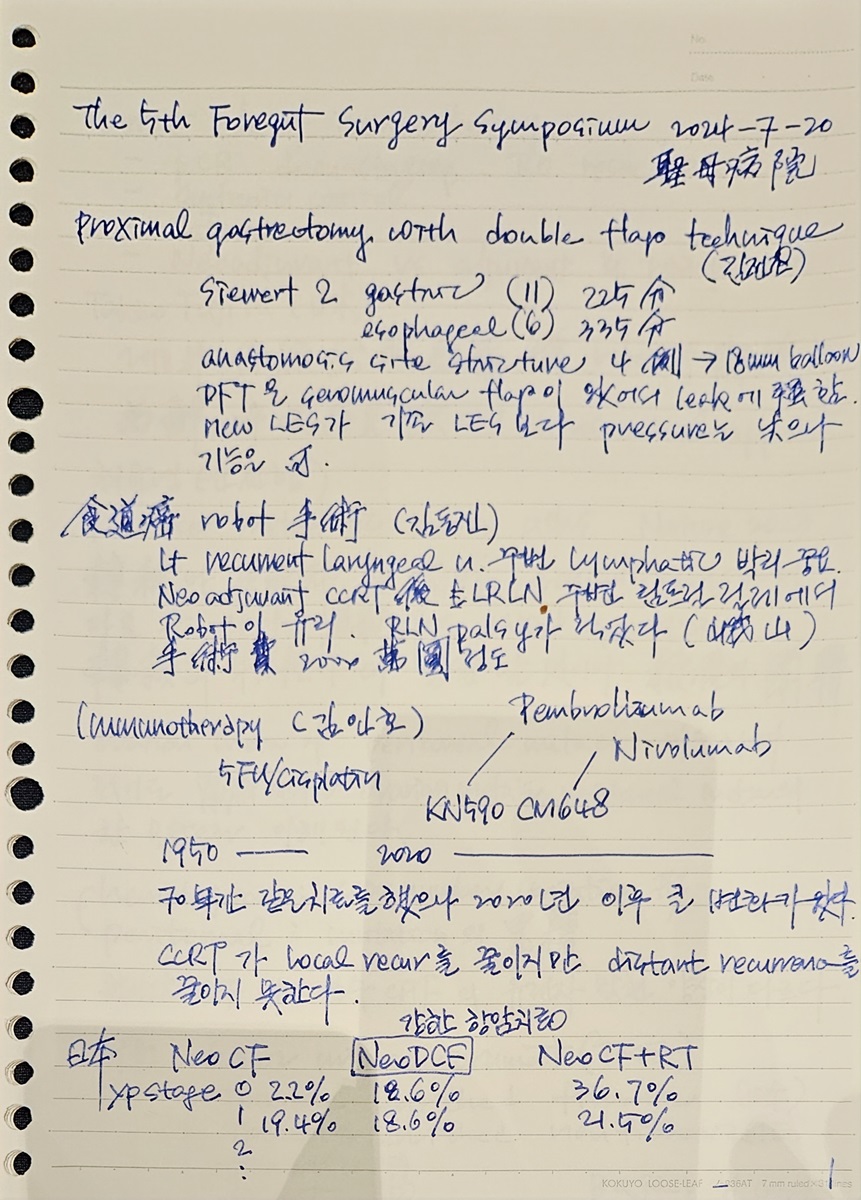 No.
Date
The 5th Foregut Surgery Symposium 2024-7-20
聖母病院
Proximal gastrectomy with double flap technique
Siewert 2 gastric (11) 225分
esophageal (6) 335分
anastomosis site stricture 4例 → 18mm balloon
DFT은 seromuscular flap이 있어서 leak에 强함.
new LES가 기존 LES보다 pressure는 낮으나
기능은 可.
食道癌 robot 手術
Lt recurrent laryngeal n. 주변 lymphatic 박리 중요.
Neoadjuvant CCRT 後 左 LRLN 주변 림프절 절제에서
Robot이 유리. RLN palsy가 적었다
手術費 2000萬圓 정도
Immunotherapy
Pembrolizumab
Nivolumab
5FU/cisplatin
KN590 CM648
1950 — 2020 —
70年간 같은 치료를 했으나 2020년 이후 큰 변화가 왔다.
CCRT가 local recur를 줄이지만 distant recurrence를
줄이지 못한다.
강한 항암치료
日本 Neo CF NeoDCF NeoCF+RT
ypstage 0 2.2% 18.6% 36.7%
1 19.4% 18.6% 21.5%
2
:
KOKUYO LOOSE-LEAF 7 mm ruled
1